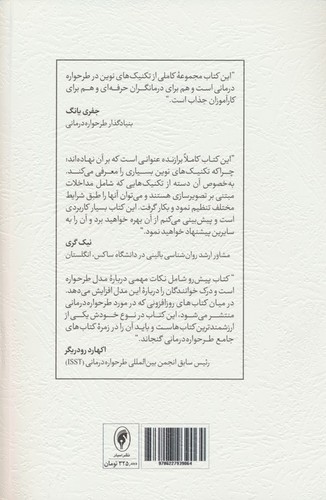 "این کتاب مجموعهٔ کاملی از تکنیک‌های نوین در طرحواره
درمانی است و هم برای درمانگران حرفه‌ای و هم برای
کارآموزان جذاب است."
جفری یانگ
بنیادگذار طرحواره‌درمانی
"این کتاب کاملاً برازنده عنوانی است که بر آن نهاده‌اند؛
چراکه تکنیک‌های نوین بسیاری را معرفی می‌کند.
به‌خصوص آن دسته از تکنیک‌هایی که شامل مداخلات
مبتنی بر تصویرسازی هستند و می‌توان آنها را طبق شرایط
مختلف تنظیم نمود و بکار گرفت. این کتاب بسیار کاربردی
است و پیش‌بینی می‌کنم از آن بهره خواهید برد و آن را به
سایرین پیشنهاد خواهید نمود."
نیک گری
مشاور ارشد روان‌شناسی بالینی در دانشگاه ساکس، انگلستان
"کتاب پیش‌رو شامل نکات مهمی دربارهٔ مدل طرحواره درمانی
است و درک خوانندگان را دربارهٔ این مدل افزایش می‌دهد.
در میان کتاب‌های روزافزونی که در مورد طرحواره‌درمانی
منتشر می‌شود، این کتاب در نوع خودش یکی از
ارزشمندترین کتاب‌هاست و باید آن را در زمرهٔ کتاب‌های
جامع طرحواره‌درمانی گنجاند."
اکهارد رودریگر
رئیس سابق انجمن بین‌المللی طرحواره‌درمانی (ISST)
نشر اسبار
۳۲۵،۰۰۰ تومان
9786227939064